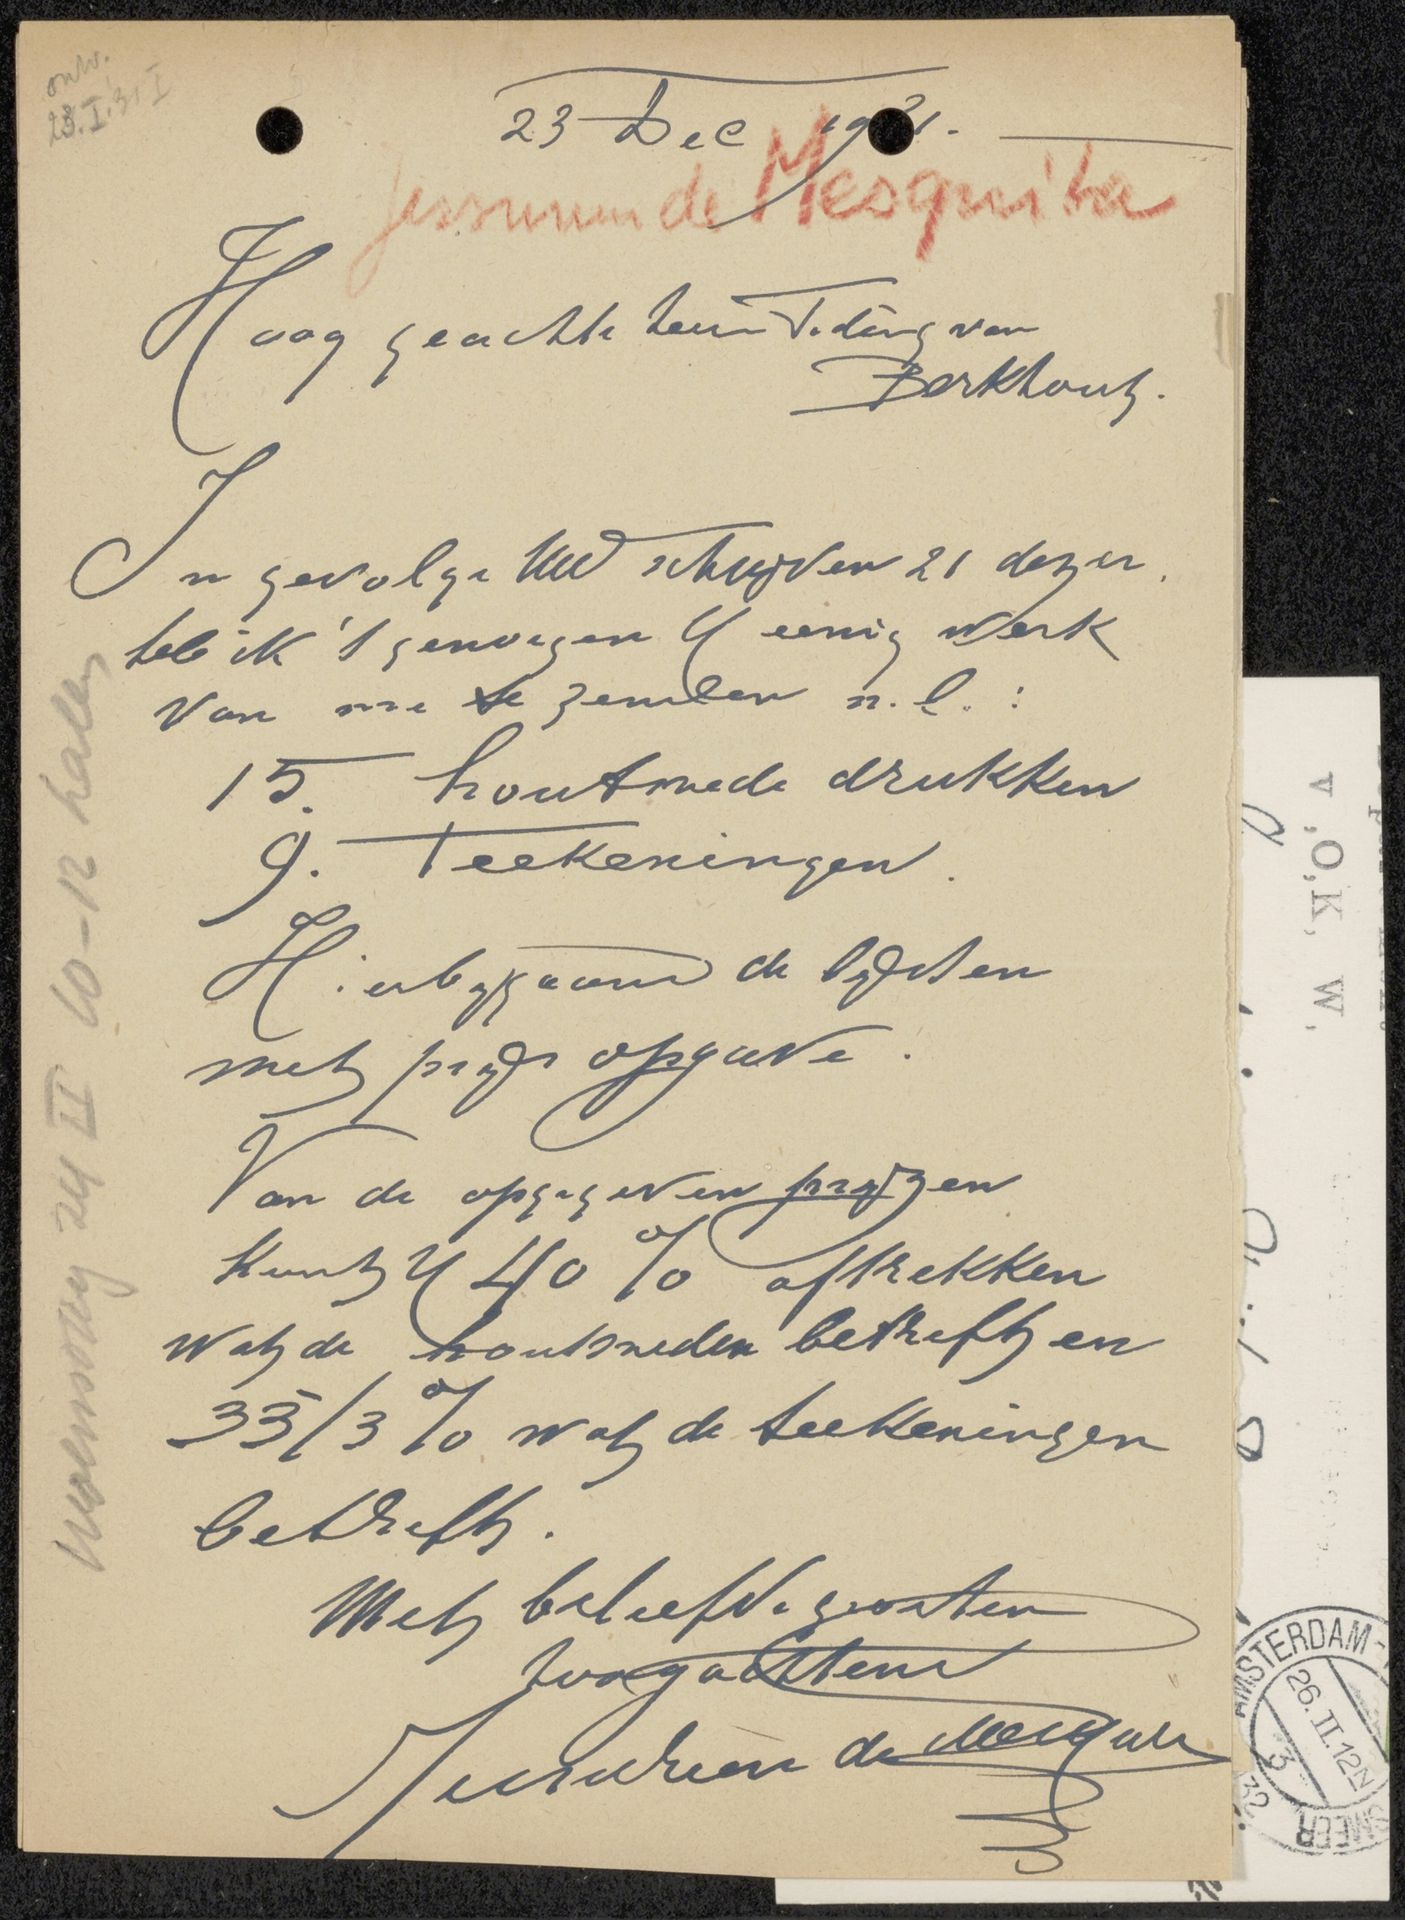 ontv.
23.I.31 I
23 Dec 1931.
Jessurun de Mesquita
Hoog geachte heer Teding van
Berkhout.
In gevolge UW schrijven 21 dezer,
heb ik 't genoegen U eenig werk
van me te zenden n.l.:
15. houtsnede drukken
9. Teekeningen.
Hierbijgaand de lijsten
met prijs opgave.
Van de opgegeven prijzen
kunt U 40 % aftrekken
wat de houtsneden betreft en
33 1/3 % wat de teekeningen
betreft.
Met beleefde groeten
hoogachtend
Jessurun de Mesquita
Woensdag 24 II 10-12 halen
V.O.K.W.
AMSTERDAM -
26.II.12N
3
32